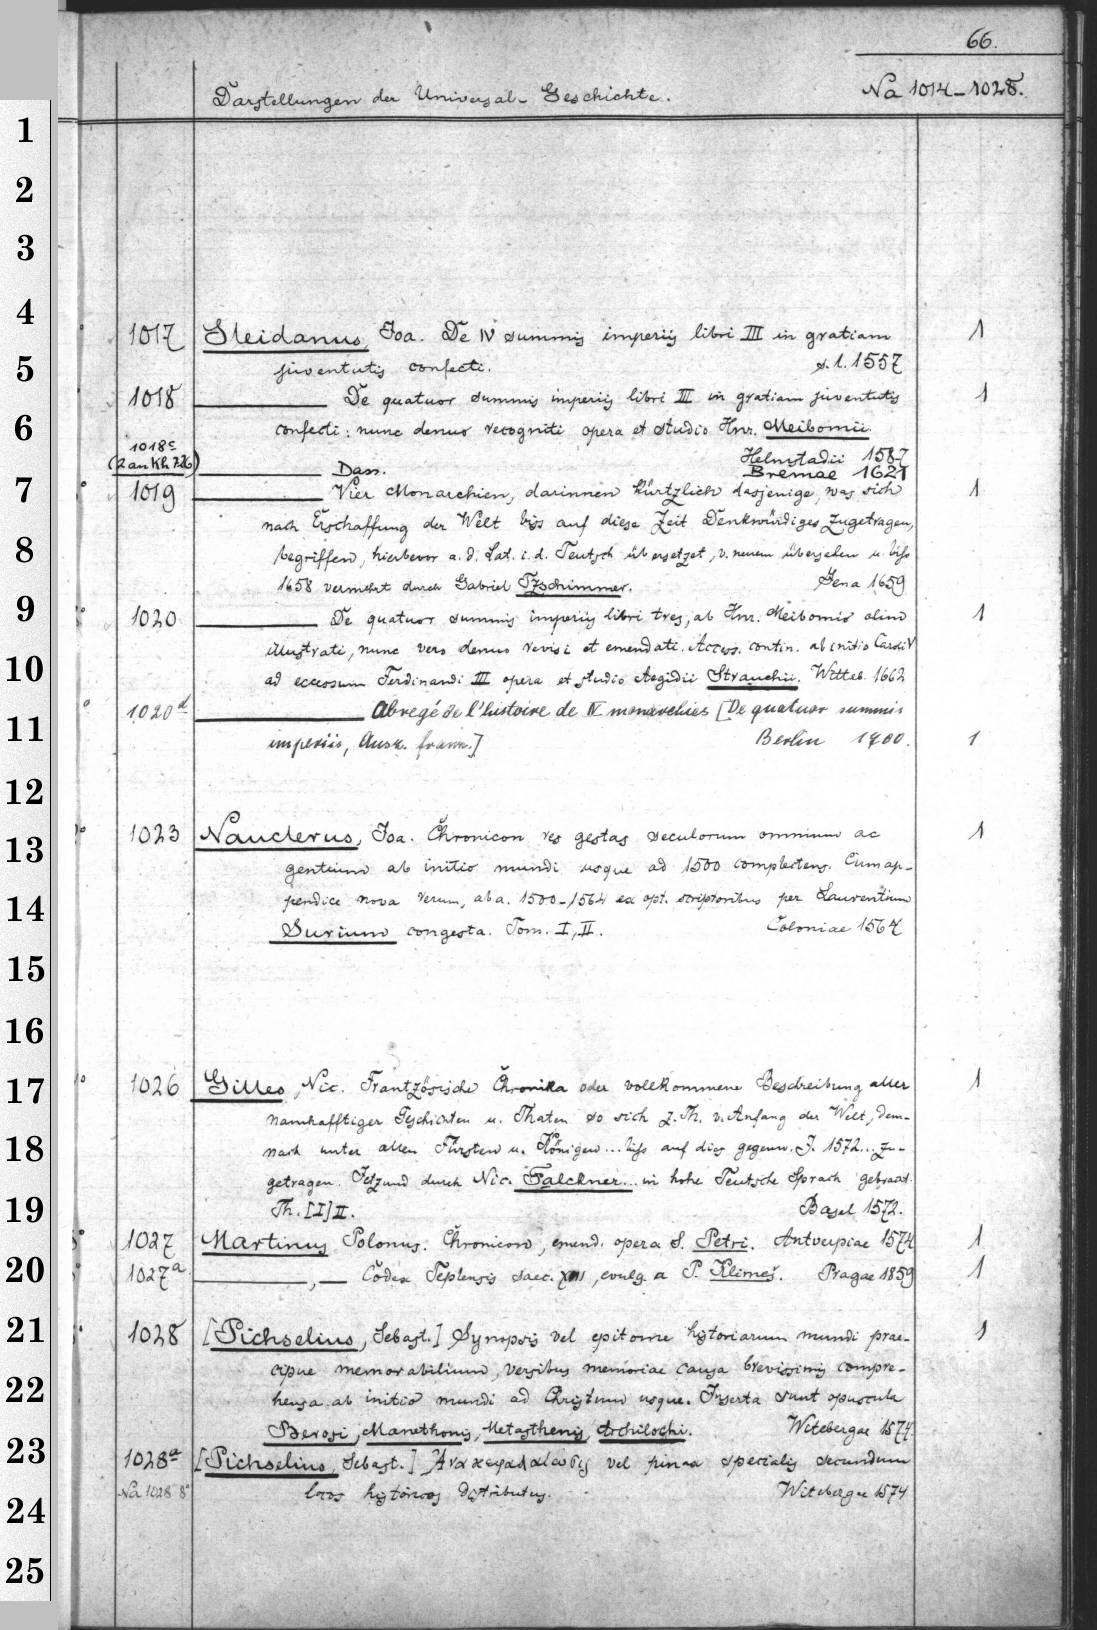 66.
Darstellungen der Universal-Geschichte. Na 1014-1028.
1
2
3
4
1017 Sleidanus, Joa. De IV summis imperiis libri III in gratiam 1
5
juventutis confecti. s. l. 1557
1018 De quatuor summis imperiis libri III in gratiam juventutis 1
6
confecti: nunc denuo recogniti opera et studio Hnr. Meibomii.
Helmstadii 1587
1018c
(2 an Kh 726) Dass. Bremae 1621
7
1019 Vier Monarchien, darinnen kürtzlich dasjenige, was sich 1
nach Erschaffung der Welt biss auf diese Zeit Denkwürdiges zugetragen,
8
begriffen, hiebevor a. d. Lat. i. d. Teutsch übersetzet, v. neuem übersehen u. biss
1658 vermehrt durch Gabriel Tzschimmer. Jena 1659
9
1020 De quatuor summis imperiis libri tres, ab Hnr. Meibomio olim 1
illustrati, nunc vero denuo revisi et emendati. Access. contin. ab initio Caroli V
10
ad excessum Ferdinandi III opera et studio Aegidii Strauchii. Witteb. 1662
1020d Abregé de l'histoire de IV monarchies [De quatuor summis
11
imperiis, Ausz. franz.] Berlin 1700. 1
12
1023 Nauclerus, Joa. Chronicon res gestas seculorum omnium ac 1
13
gentium ab initio mundi usque ad 1500 complectens. Cum ap-
pendice nova rerum, ab a. 1500-1564 ex opt. scriptoribus per Laurentium
14
Surium congesta. Tom. I, II. Coloniae 1564
15
16
17
1026 Gilles, Nic. Frantzösische Chronika oder vollkommene Beschreibung aller 1
namhafftiger Geschichten u. Thaten so sich z. Th. v. Anfang der Welt, dem-
18
nach unter allen Fürsten u. Königen... biss auf dies gegenw. J. 1572... zu-
getragen. Jetzund durch Nic. Falckner... in hohe Teutsche Sprach gebracht.
19
Th. [I] II. Basel 1572.
1027 Martinus Polonus. Chronicon, emend. opera S. Petri. Antverpiae 1574 1
20
1027a , — Codex Teplensis saec. XIII, evulg. a P. Klimeš. Pragae 1859 1
21
1028 [Pichselius, Sebast.] Synopsis vel epitome historiarum mundi prae- 1
cipue memorabilium, versibus memoriae causa brevissimis compre-
22
hensa ab initio mundi ad Christum usque. Inserta sunt opuscula
Berosi, Manethonis, Metasthenis, Archilochi. Witebergae 1574.
23
1028a [Pichselius, Sebast.] Ἀνακεφαλαίωσις vel pinax specialis secundum
Na 1028 8° locos historicos distributus. Witebergae 1574
24
25